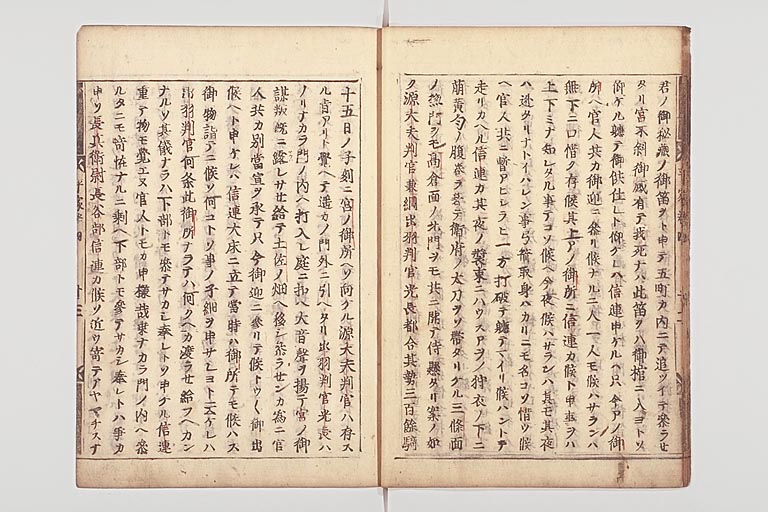 君ノ御秘蔵ノ御笛ヲト申テ五町カ内ニテ追ツイテ参ラセ
タリ宮不斜御感有テ我死ナハ此笛ヲハ御棺ニ入ヨトソ
仰ケル軈テ御供仕レト仰ケレハ信連申ケルハ只今アノ御
所ヘ官人共カ御迎ニ参リ候ナルニ人一人モ候ハサランハ
無下ニ口惜ク存候其上アノ御所ニ信連カ候ト申事ヲハ
上下ミナ知レタル事テコソ候ヘ今夜候ハサランハ其モ其夜
ハ逃タリナトイハレン事弓箭取身ハカリニモ名コソ惜ウ候
ヘ官人共ニ暫アヒシラヒ一方打破テ軈テマイリ候ハントテ
走リカヘル信連カ其夜ノ装束ニハウスアヲノ狩衣ノ下ニ
萌黄匂ノ腹巻ヲ著テ衛府ノ太刀ヲソ帯タリケル三條面
ノ惣門ヲモ高倉面ノ小門ヲモ共ニ開テ待懸タリ案ノ如
ク源大夫判官兼綱出羽判官光長都合其勢三百餘騎
十五日ノ子刻ニ宮ノ御所ヘソ向ケル源大夫判官ハ存ス
ル旨アリト覺ヘテ遥カノ門外ニ引ヘタリ出羽判官光長ハ
ノリナカラ門ノ内ヘ打入レ庭ニ扣ヘ大音聲ヲ揚テ宮ノ御
謀叛既ニ露レサセ給テ土佐ノ畑ヘ後シ参ラセンカ為ニ官
人共カ別當宣ヲ承テ只今御迎ニ参リテ候トウく御出
候ヘト申ケレハ信連大床ニ立テ當時ハ御所テモ候ハス
御物詣テニ候ソ何コトソ事ノ子細ヲ申サレヨト云ケレハ
出羽判官何条此御所ナラテハ何クヘカ渡ラせ給フヘカン
ナルソ其儀ナラハ下部トモ参テサカシ奉レトソ申ケル信連
重テ物モ覺エヌ官人トモカ申様哉東ナカラ門ノ内ヘ参
ルタニモ奇恠ナルニ剰ヘ下部トモ参テサカシ奉レトハ事カ
申ソ長兵衛尉長谷部信連カ候ソ近ウ寄テアヤマチスナ